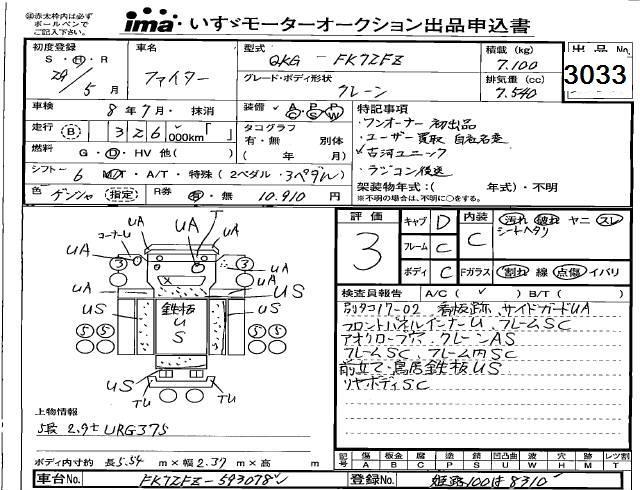 ㊟赤太枠内は必ず
ボールペンで
ご記入下さい。
ima いすゞモーターオークション出品申込書
初度登録
S・H・R
29/5月
車名
ファイター
型式
QKG - FK72FZ
積載 (kg)
7.100
グレード・ボディ形状
クレーン
排気量 (cc)
7.540
出品 No.
3033
車検
8年7月・抹消
装備 A/C P/S P/W
走行 B 326,000km「 」
タコグラフ
有・無 別体
( 年 月)
燃料 G・D・HV 他( )
シフト 6 MT・A/T・特殊 (2ペダル・3ペダル)
色 ゲンシャ (指定)
R券 有・無 10.910 円
特記事項
・ワンオーナー 初出品
・ユーザー買取 自社名変
・古河ユニック
・ラジコン後送
架装物年式:( 年式)・不明
※不明の場合は、不明に○をする。
評価
3
キャブ D
フレーム C
ボディ C
内装 C
汚れ 破れ ヤニ スレ
シートヘタリ
Fガラス 割れ 線 点傷 イバリ
検査員報告 A/C ( ✓ ) B/T ( )
別タコ17-02 看板跡、サイドガードUA
フロントパネルインナーU、フレームSC
アオリロープ穴、クレーンAS
フレームSC、フレーム内SC
前立て・鳥居鉄板US
リヤボディSC
コーナーU
UA
UA
T
UA
UA
3
3
UA
UA
US
US
US
鉄板
U
S
5
5
5
5
US
TU
TU
上物情報
5段 2.9t URG375
ボディ内寸約 長5.54 m×幅2.37 m×高 m
記号 傷 A 板金 B 腐 C 塗 P 錆 S 凹凸曲 U 波 W 穴 H 跡 M 汚 T レツ割
車台No. FK72FZ-593078
登録No. 姫路100は8310